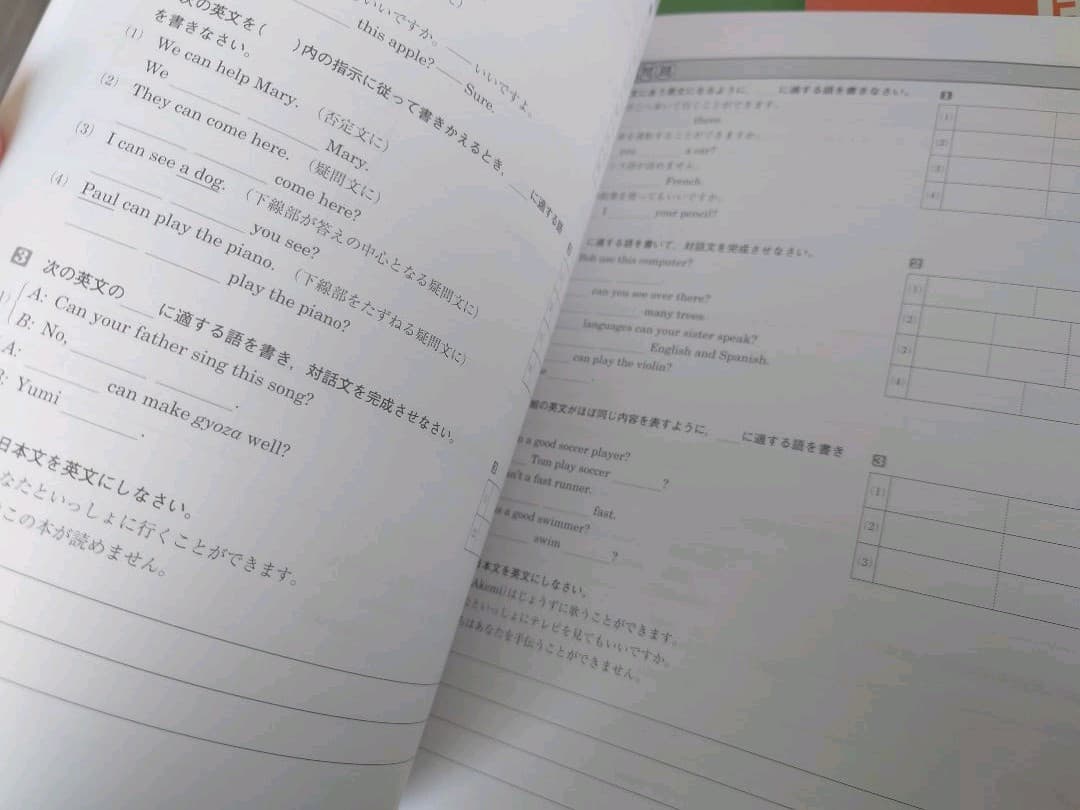 いいですか。 ____ ____ いいですよ。
this apple? ____ Sure.
次の英文を( )内の指示に従って書きかえるとき, ____ に適する語
を書きなさい。
(1) We can help Mary. (否定文に)
We ____ ____ Mary.
(2) They can come here. (疑問文に)
____ ____ come here?
(3) I can see a dog. (下線部が答えの中心となる疑問文に)
____ ____ you see?
(4) Paul can play the piano. (下線部をたずねる疑問文に)
____ ____ play the piano?
3 次の英文の ____ に適する語を書き, 対話文を完成させなさい。
A: Can your father sing this song?
B: No, ____ ____.
A: ____ can make gyoza well?
Yumi ____.
日本文を英文にしなさい。
なたといっしょに行くことができます。
この本が読めません。
問題
____ に適する語を書きなさい。
行くことができます。
there.
することができますか。
you ____ a car?
____ French.
使ってもいいですか。
I ____ your pencil?
に適する語を書いて, 対話文を完成させなさい。
Bob use this computer?
can you see over there?
____ many trees.
languages can your sister speak?
____ English and Spanish.
can play the violin?
組の英文がほぼ同じ内容を表すように, ____ に適する語を書き
a good soccer player?
____ Tom play soccer ____?
a fast runner.
____ fast.
a good swimmer?
____ swim ____?
日本文を英文にしなさい。
(Akemi)はじょうずに歌うことができます。
といっしょにテレビを見てもいいですか。
はあなたを手伝うことができません。
1
(1)
(2)
(3)
(4)
2
(1)
(2)
(3)
(4)
3
(1)
(2)
(3)